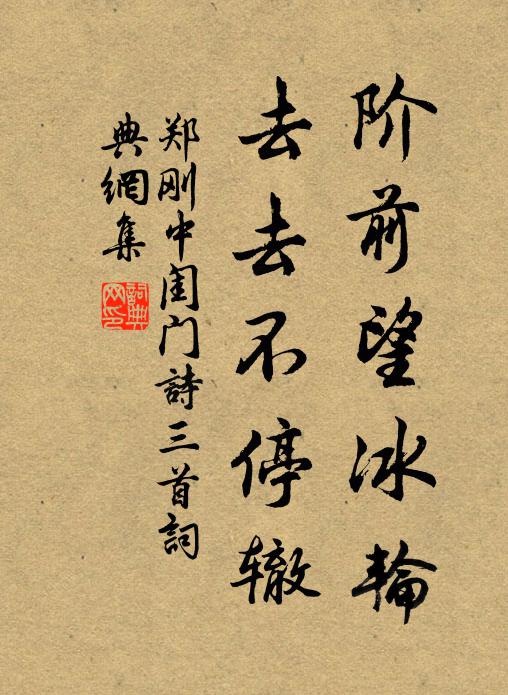 阶前望冰輪
去去不停辙
郑刚中闺门詩三首詞
典網集
詞典网印